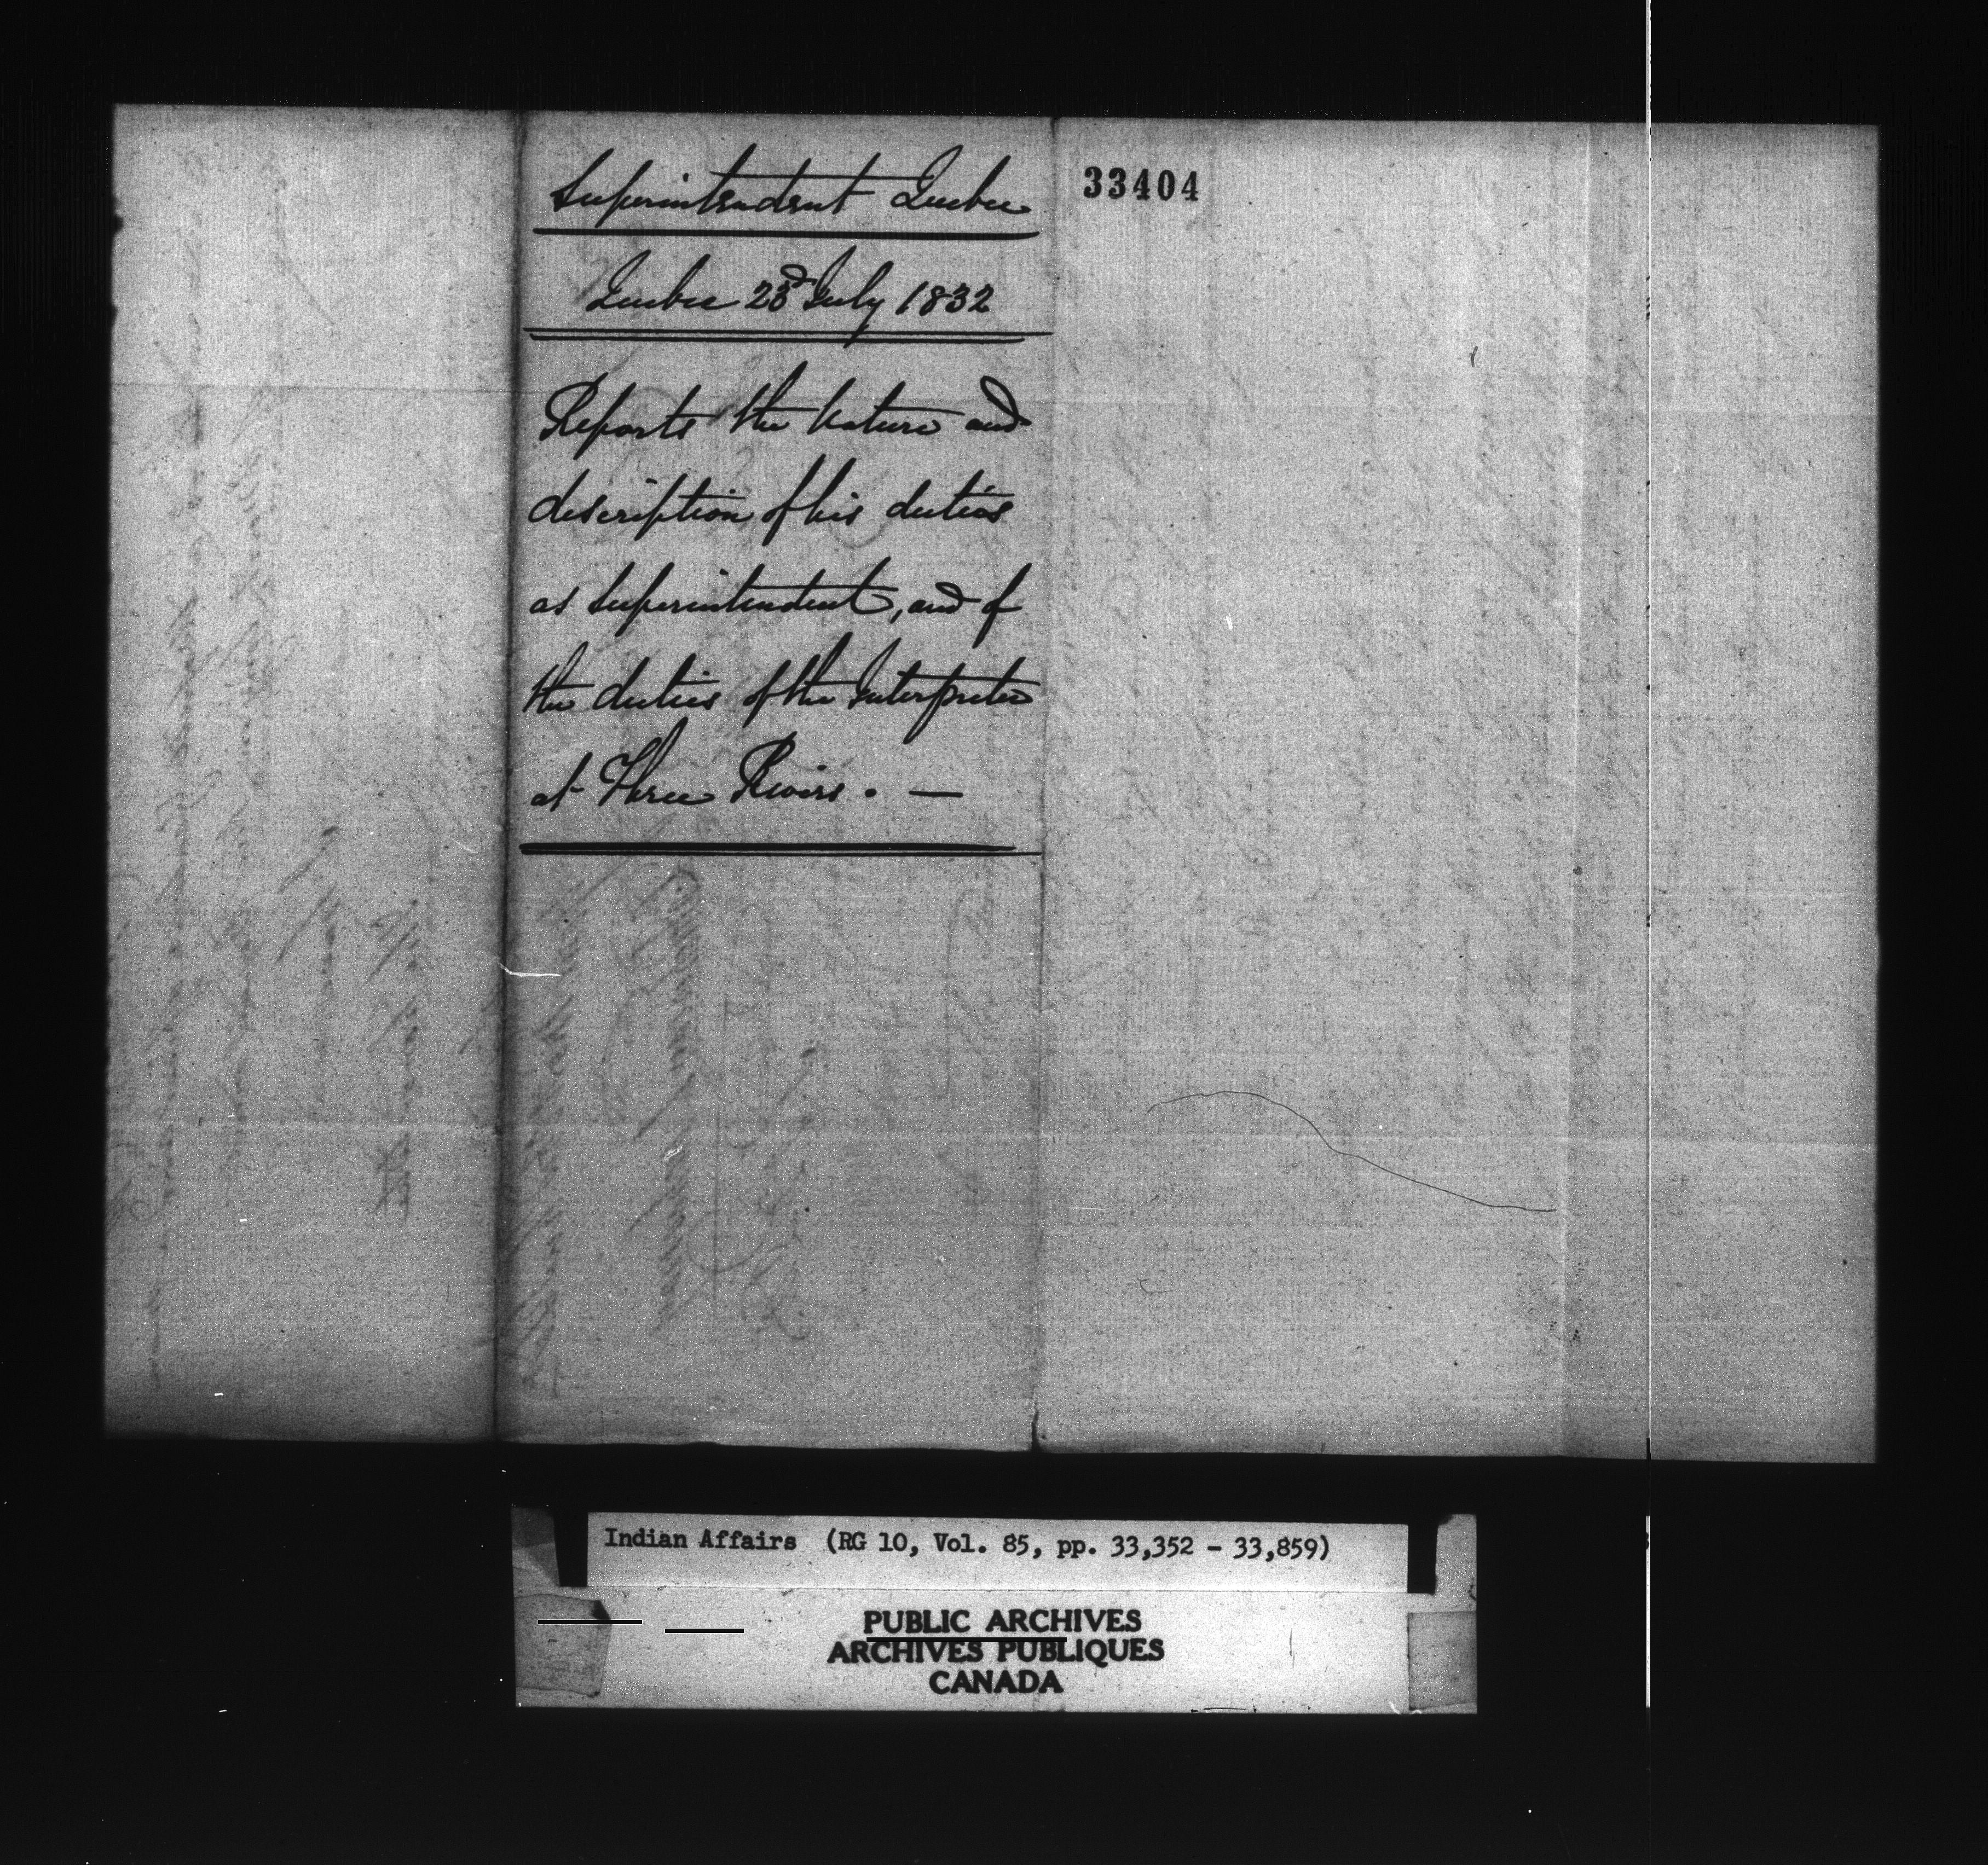 Superintendent Quebec
33404
Quebec 23d July 1832
Reports the nature and
description of his duties
as Superintendent, and of
the duties of the Interpreter
at Three Rivers. —
Indian Affairs (RG 10, Vol. 85, pp. 33,352 - 33,859)
PUBLIC ARCHIVES
ARCHIVES PUBLIQUES
CANADA